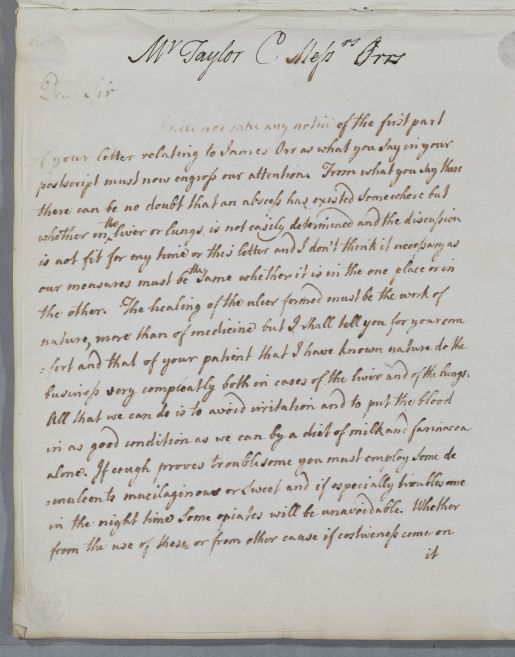 Mr Taylor C Messrs Orrs
Dear Sir
I need not take any notice of the first part
of your letter relating to James Orr as what you say in your
postscript must now engross our attention. From what you say there
there can be no doubt that an abscess has existed somewhere but
whether in the liver or lungs is not easily determined and the discussion
is not fit for my time or this letter and I don't think it necessary as
our measures must be the same whether it is in the one place or in
the other. The healing of the ulcer formed must be the work of
nature, more than of medicine but I shall tell you for your com
=fort and that of your patient that I have known nature do the
business very compleatly both in cases of the liver and of the lungs.
All that we can do is to avoid irritation and to put the blood
in as good condition as we can by a diet of milk and farinacea
alone. If cough proves troublesome you must employ some de
=mulcents mucilaginous or sweet and if especially troublesome
in the night time some opiates will be unavoidable. Whether
from the use of these or from other cause if costiveness come on
it